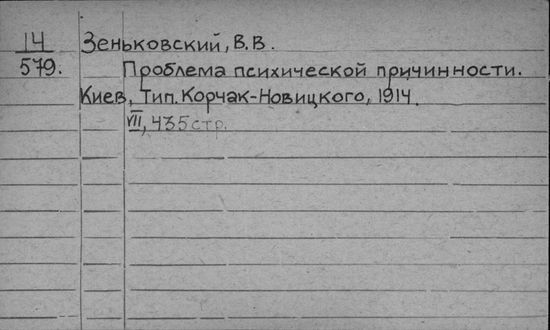 14 Зеньковский, В.В.
579. Проблема психической причинности.
Киев, Тип. Корчак-Новицкого, 1914.
VII, 435 стр.